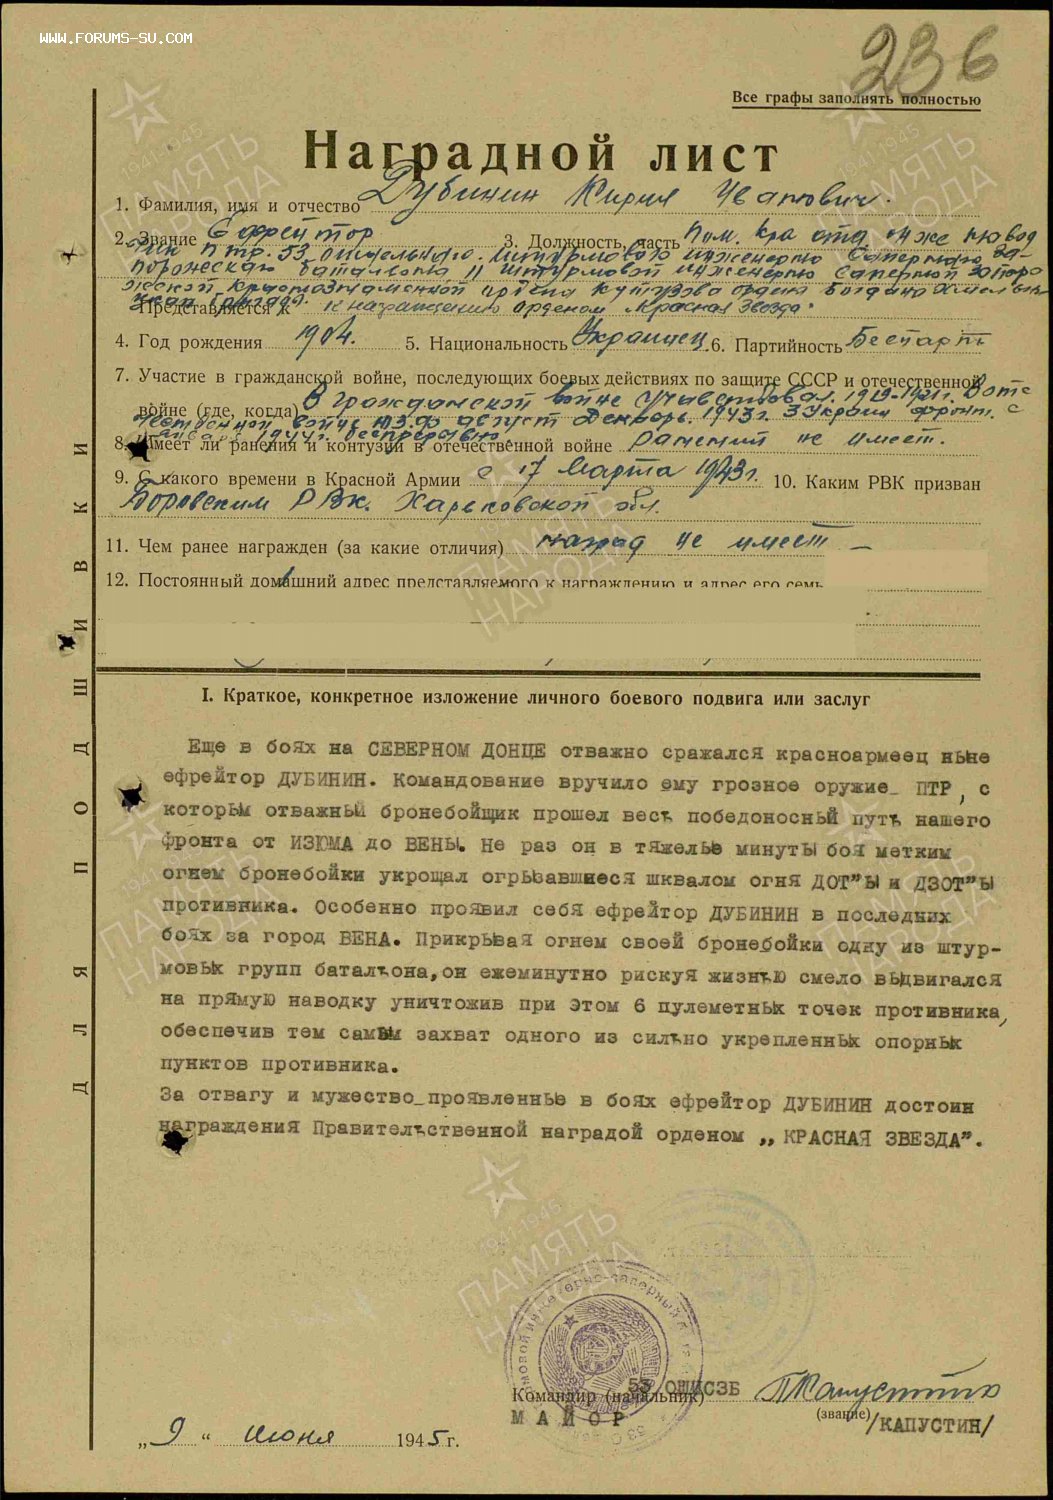 WWW.FORUMS-SU.COM
236
Все графы заполнять полностью
Наградной лист
1. Фамилия, имя и отчество Дубинин Кирил Иванович.
2. Звание Ефрейтор 3. Должность, часть Пом. к-ра отд. он же навод
чик ПТР. 53 отдельного. штурмового инженерно саперного За-
порожского баталиона 11 штурмовой инженерно саперной Запоро
жской Краснознаменной ордена Кутузова ордена Богдана Хмельни
цкая бригада.
Представляется к к награждению орденом Красная Звезда.
4. Год рождения 1904. 5. Национальность Украинец. 6. Партийность Беспарт
7. Участие в гражданской войне, последующих боевых действиях по защите СССР и отечественной
войне (где, когда) В гражданской войне участвовал. 1919-1921г. В оте
чественной войне август Декабрь. 1943г. 3 Украин фронт. с
января 1944г. беспрерывно.
8. Имеет ли ранения и контузии в отечественной войне ранений не имеет.
9. С какого времени в Красной Армии с 17 Марта 1943г. 10. Каким РВК призван
Боровским РВК. Харьковской обл.
11. Чем ранее награжден (за какие отличия) наград не имеет —
12. Постоянный домашний адрес представляемого к награждению и адрес его семь
I. Краткое, конкретное изложение личного боевого подвига или заслуг
Еще в боях на СЕВЕРНОМ ДОНЦЕ отважно сражался красноармеец ныне
ефрейтор ДУБИНИН. Командование вручило ему грозное оружие_ ПТР, с
которым отважный бронебойщик прошел весь победоносный путь нашего
фронта от ИЗЮМА до ВЕНЫ. Не раз он в тяжелые минуты боя метким
огнем бронебойки укрощал огрызавшиеся шквалом огня ДОТ"ы и ДЗОТ"ы
противника. Особенно проявил себя ефрейтор ДУБИНИН в последних
боях за город ВЕНА. Прикрывая огнем своей бронебойки одну из штур-
мовых групп батальона, он ежеминутно рискуя жизнью смело выдвигался
на прямую наводку уничтожив при этом 6 пулеметных точек противника,
обеспечив тем самым захват одного из сильно укрепленных опорных
пунктов противника.
За отвагу и мужество_проявленные в боях ефрейтор ДУБИНИН достоин
награждения Правительственной наградой орденом „КРАСНАЯ ЗВЕЗДА".
Командир (начальник) 53 ОШИСЗБ
МАЙОР (звание) /КАПУСТИН/
„9" июня 1945 г.
ДЛЯ ПОДШИВКИ
1941-1945
ПАМЯТЬ
НАРОДА